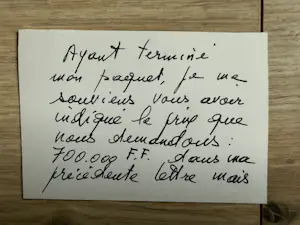 Ayant terminé
mon paquet, je me
souviens vous avoir
indiqué le prix que
nous demandons :
700.000 F.F. dans ma
précédente lettre mais